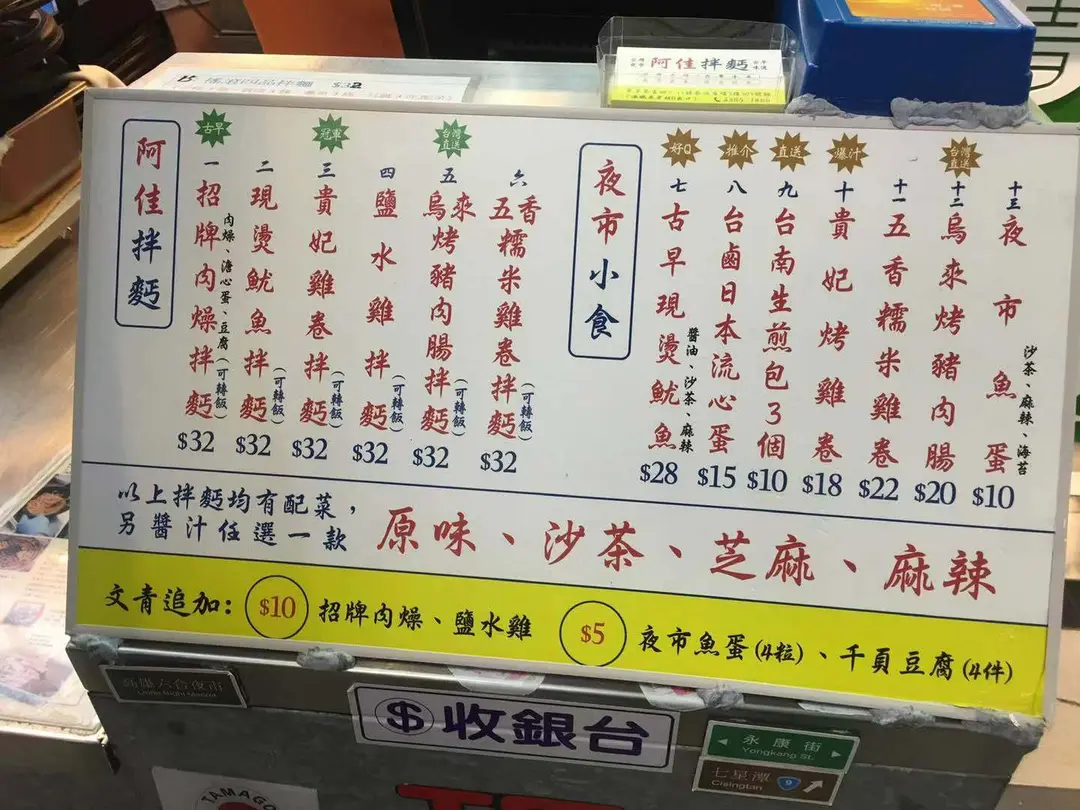 阿佳拌麵
阿佳拌麵
古早
一 招牌肉燥拌麵
肉燥、溏心蛋、豆腐(可轉飯)
$32
二 現燙魷魚拌麵
(可轉飯)
$32
冠軍
三 貴妃雞卷拌麵
(可轉飯)
$32
四 鹽水雞拌麵
(可轉飯)
$32
台灣直送
五 烏來烤豬肉腸拌麵
(可轉飯)
$32
六 五香糯米雞卷拌麵
(可轉飯)
$32
夜市小食
好Q
七 古早現燙魷魚
醬油、沙茶、麻辣
$28
推介
八 台鹵日本流心蛋
$15
直送
九 台南生煎包3個
$10
爆汁
十 貴妃烤雞卷
$18
十一 五香糯米雞卷
$22
台灣直送
十二 烏來烤豬肉腸
$20
十三 夜市魚蛋
沙茶、麻辣、海苔
$10
以上拌麵均有配菜,
另醬汁任選一款
原味、沙茶、芝麻、麻辣
文青追加: $10 招牌肉燥、鹽水雞 $5 夜市魚蛋(4粒)、千頁豆腐(4件)
$ 收銀台
永康街
Yongkang St.
七星潭
Cisingtan
9
TAMAGO